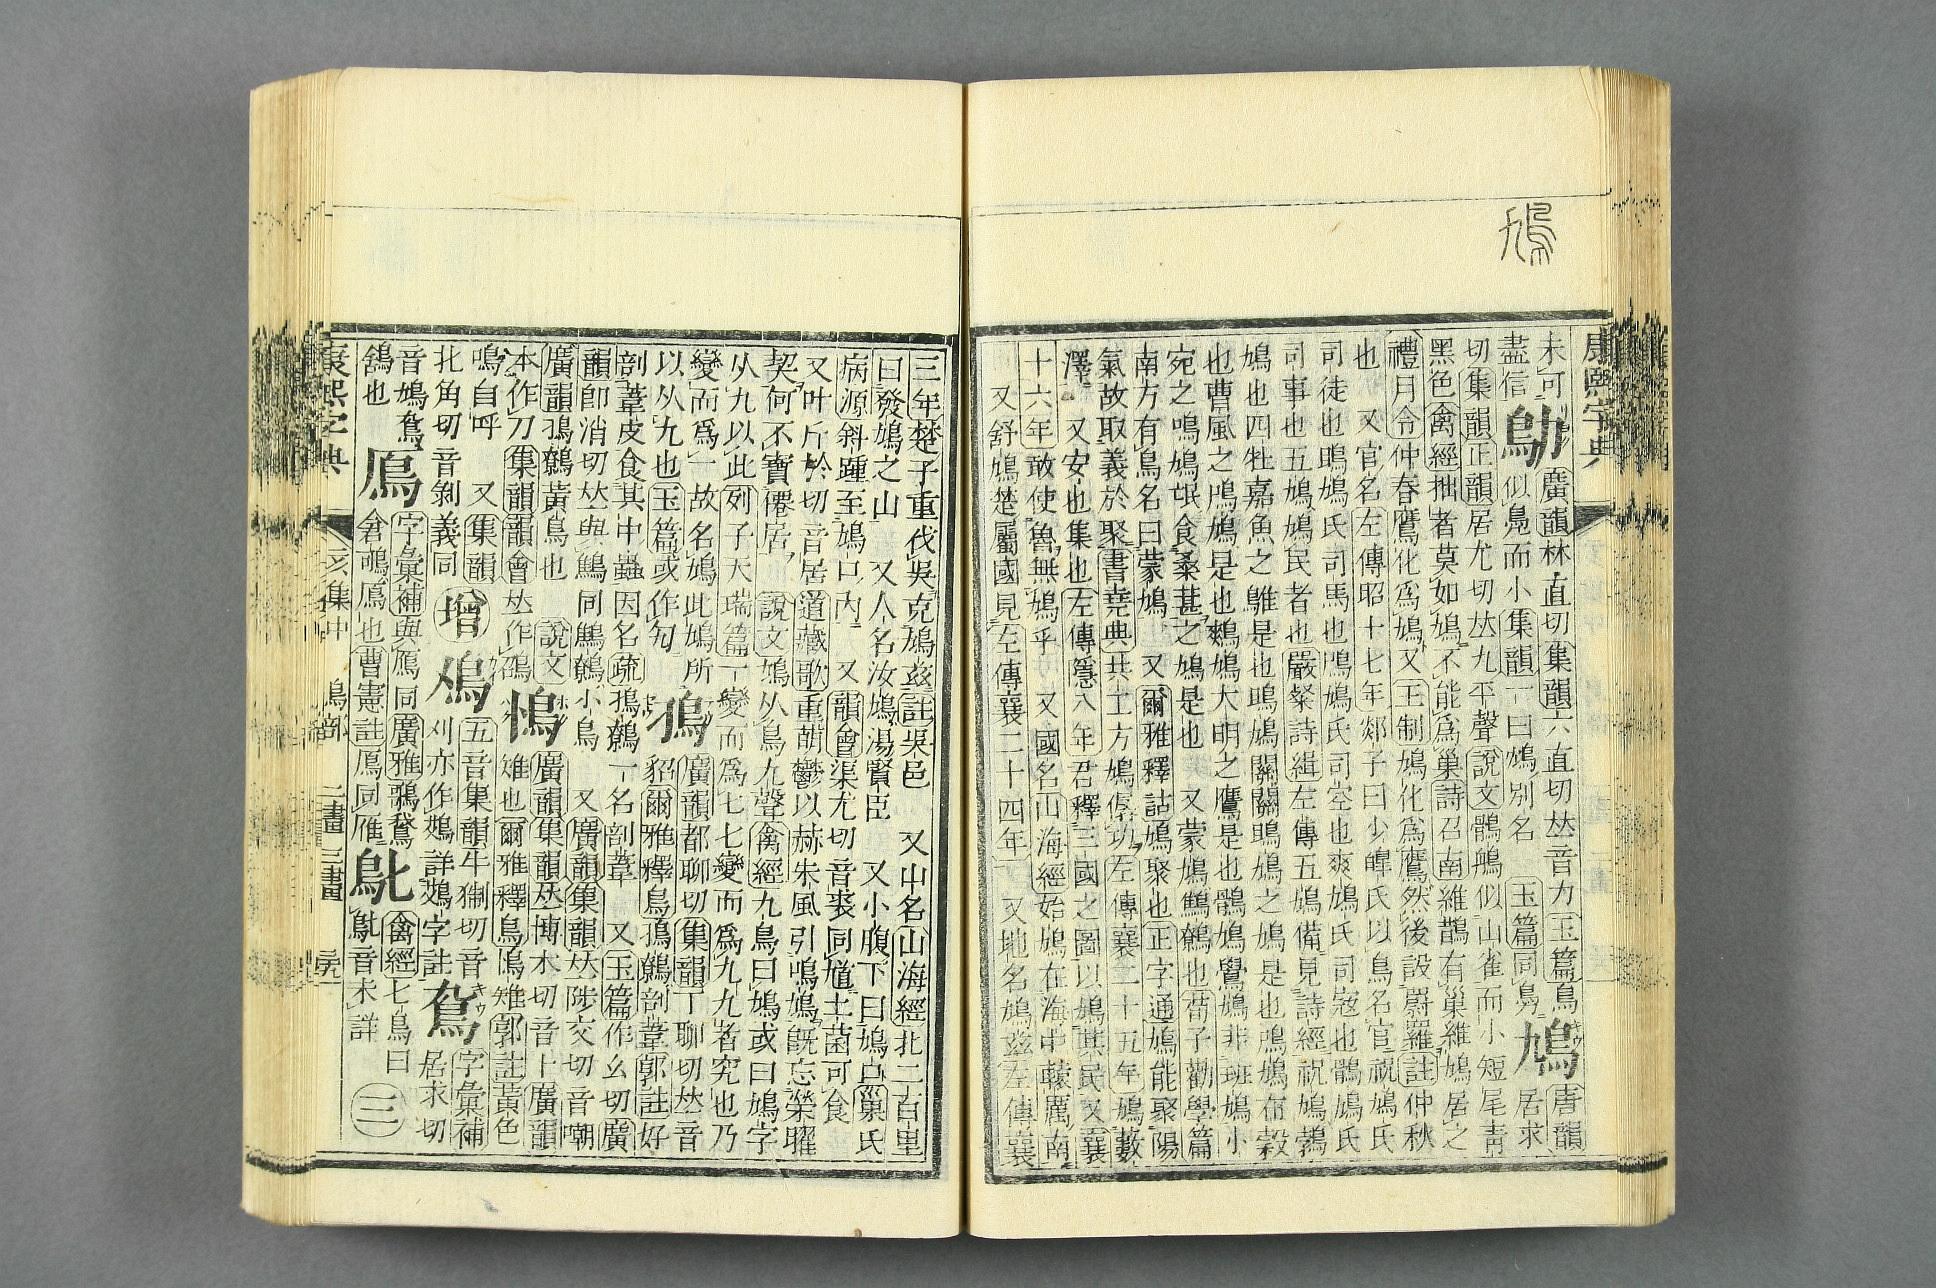 康熙字典
鳩
未可 廣韻林直切集韻六直切𠀤音力玉篇鳥 唐韻
盡信 鳨 似鳧而小集韻一曰鳭別名 玉篇同鳧 鳩 居求
切集韻正韻居尤切𠀤九平聲說文鶻鵃似山雀而小短尾青
黑色禽經拙者莫如鳩不能爲巢詩召南維鵲有巢維鳩居之
禮月令仲春鷹化爲鳩又王制鳩化爲鷹然後設罻羅註仲秋
也 又官名左傳昭十七年郯子曰少皡氏以鳥名官祝鳩氏
司徒也鴡鳩氏司馬也鳲鳩氏司空也爽鳩氏司寇也鶻鳩氏
司事也五鳩鳩民者也嚴粲詩緝左傳五鳩備見詩經祝鳩鵓
鳩也四牡嘉魚之鵻是也鴡鳩關關鴡鳩之鳩是也鳲鳩布穀
也曹風之鳲鳩是也鷞鳩大明之鷹是也鶻鳩鷽鳩非班鳩小
宛之鳴鳩氓食桑葚之鳩是也 又蒙鳩鷦鷯也荀子勸學篇
南方有鳥名曰蒙鳩 又爾雅釋詁鳩聚也正字通鳩能聚陽
氣故取義於聚書堯典共工方鳩僝功左傳襄二十五年鳩藪
澤 又安也集也左傳隱八年君釋三國之圖以鳩其民又襄
十六年敢使魯無鳩乎 又國名山海經始鳩在海中轅厲南
又舒鳩楚屬國見左傳襄二十四年 又地名鳩茲左傳襄
三年楚子重伐吳克鳩茲註吳邑 又山名山海經北二百里
曰發鳩之山 又人名汝鳩湯賢臣 又小腹下曰鳩 巢氏
病源斜踵至鳩口內 又韻會渠尤切音裘同馗土菌可食
又叶斤於切音居道藏歌重萌鬱以赫朱風引鳴鳩旣忘榮曜
契何不寶僊居 說文鳩从鳥九聲禽經九鳥曰鳩或曰鳩字
从九以此列子天瑞篇一變而爲七七變而爲九九者究也乃
變而爲一故名鳩此鳩所 鳭 廣韻都聊切集韻丁聊切𠀤音
以从九也玉篇或作勼 貂爾雅釋鳥鳭鷯剖葦郭註好
剖葦皮食其中蟲因名疏鳭鷯一名剖葦 又玉篇作幺切廣
韻卽消切𠀤與鷦同鷦鷯小鳥 又廣韻集韻𠀤陟交切音嘲
廣韻鳭鷯黃鳥也 說文 鳪 廣韻集韻𠀤博木切音卜廣韻
本作刀集韻韻會𠀤作鵰 雉也爾雅釋鳥鳪雉郭註黃色
鳴自呼 又集韻 五音集韻牛猘切音 字彙補
北角切音剝義同 增 刈亦作鴱詳鴱字註 居求切
音鳩 字彙補與鴈同廣雅鴚鵞 禽經七鳥曰
鶬也 鳫 倉鴚鳫也曹憲註鳫同雁 音未詳 三
康熙字典 亥集中 鳥部 二畫 三畫